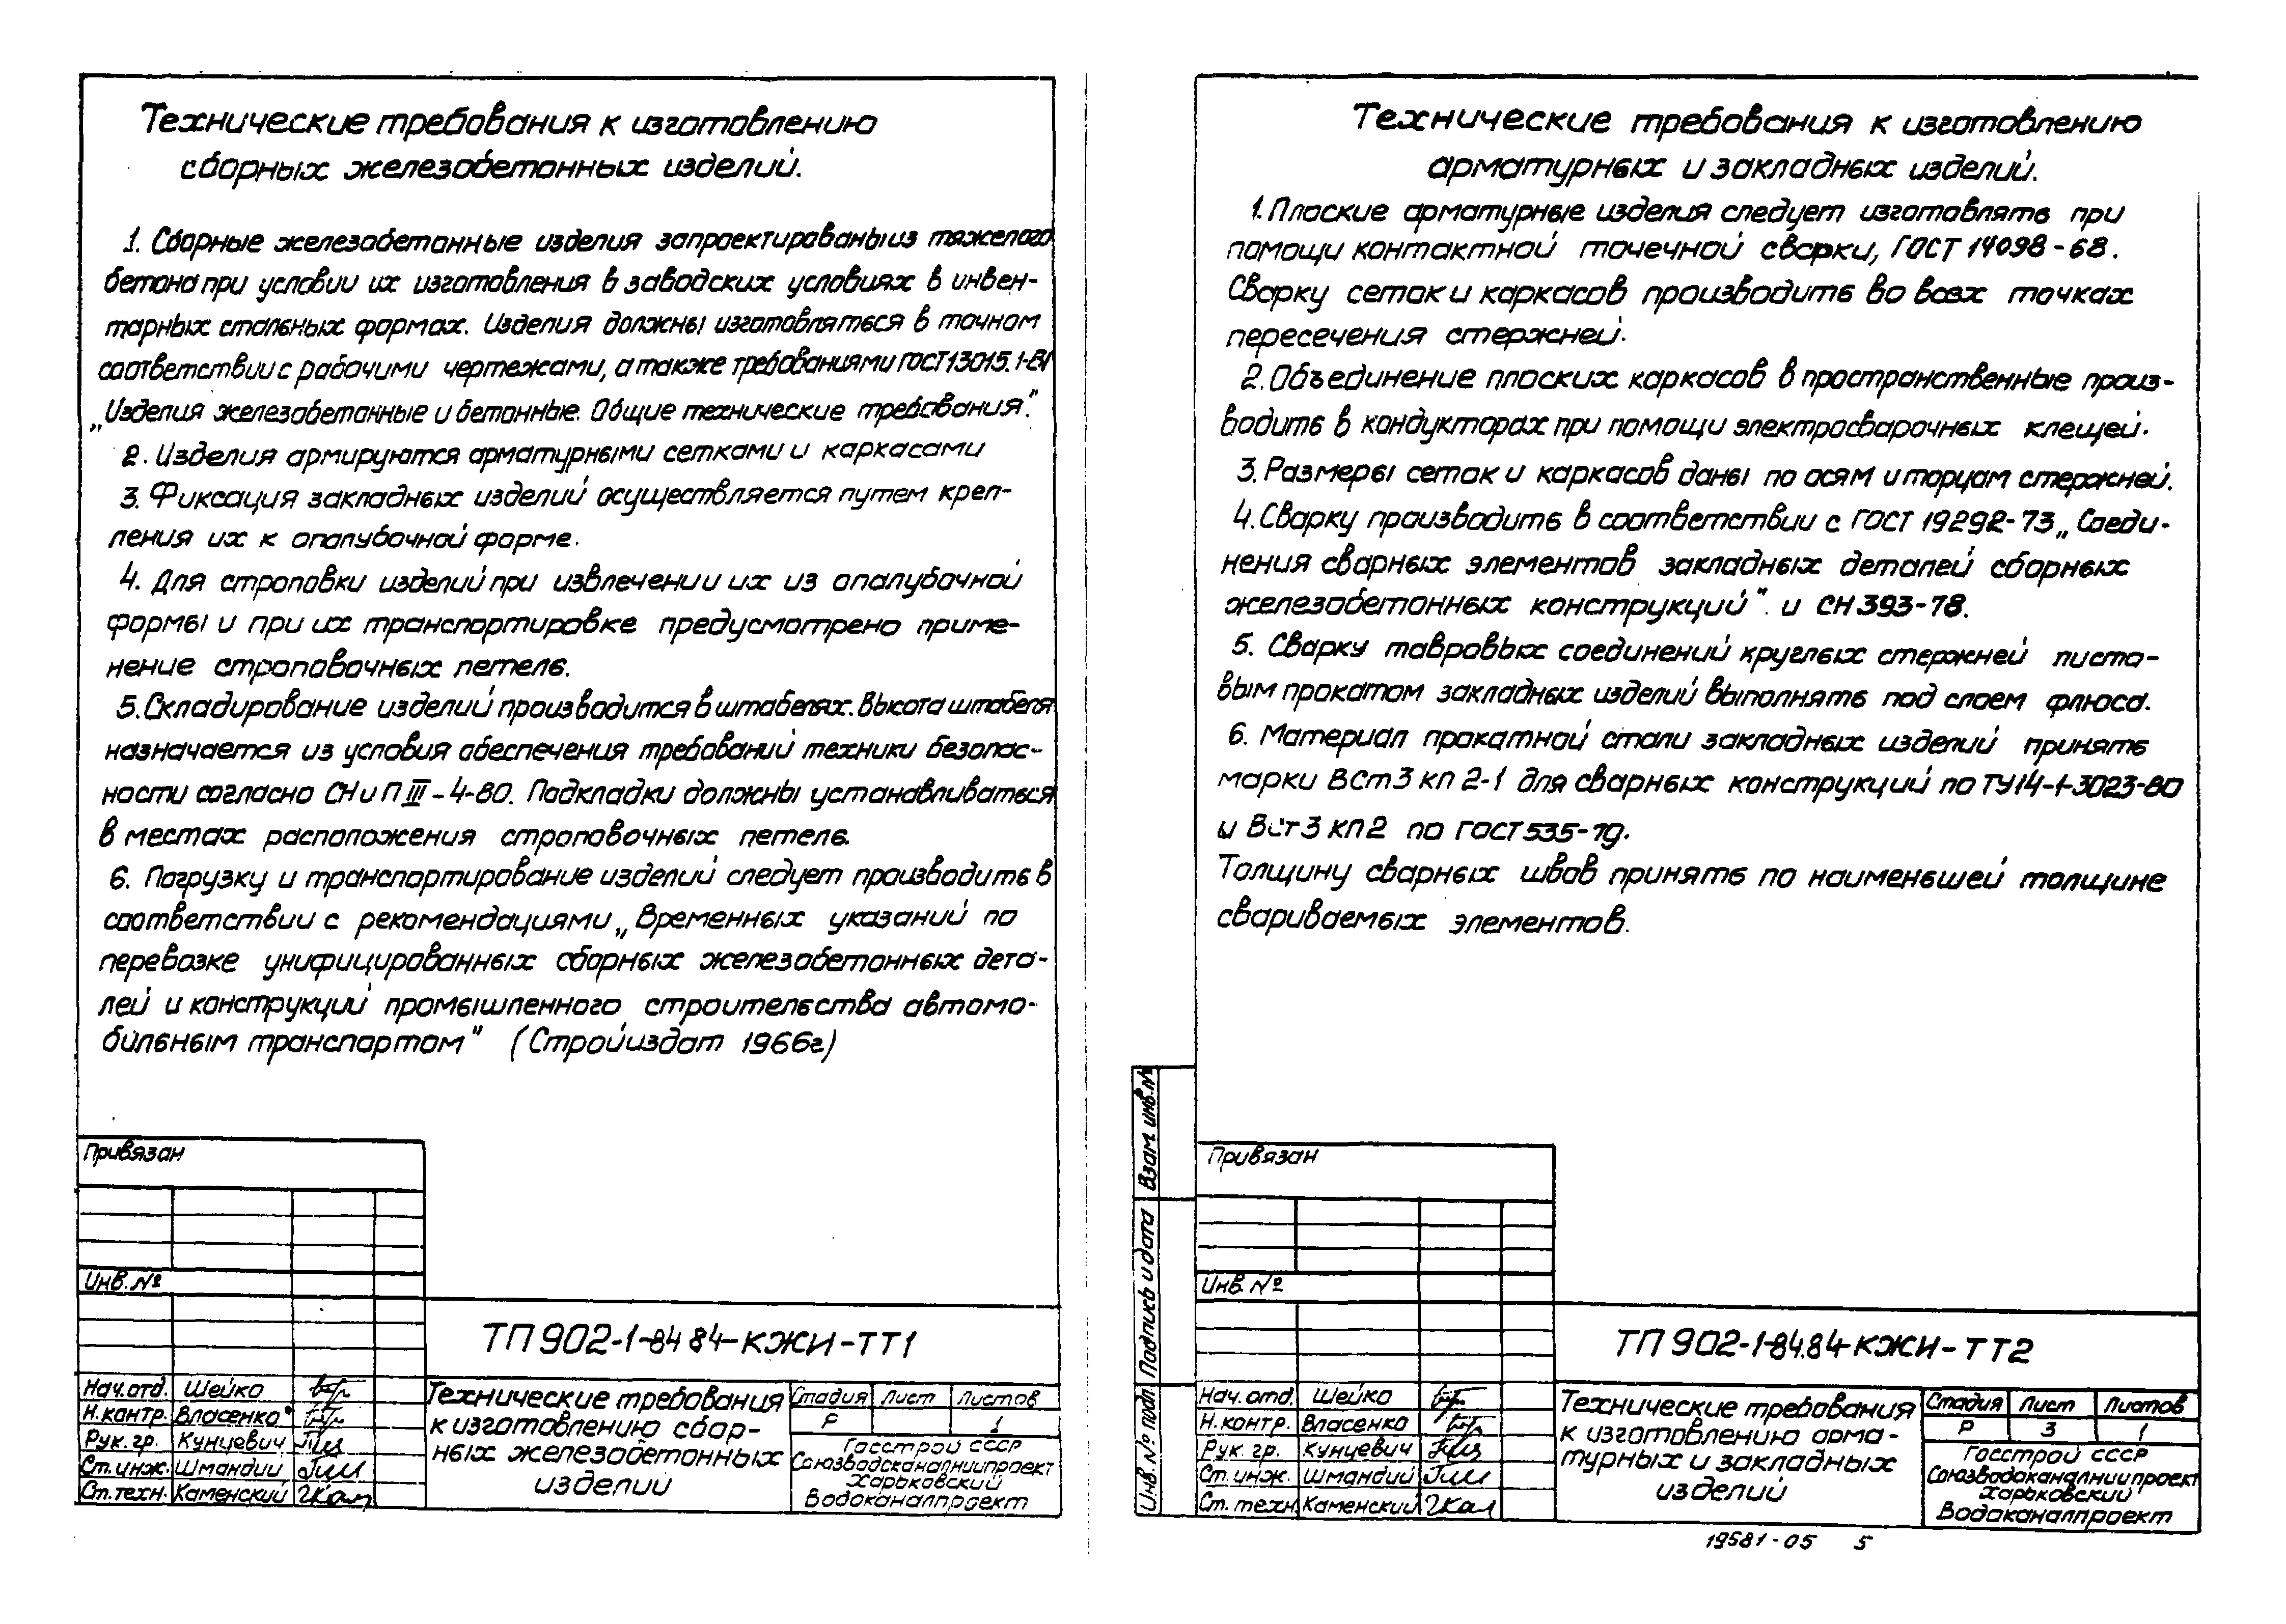 Технические требования к изготовлению
сборных железобетонных изделий.
1. Сборные железобетонные изделия запроектированы из тяжелого
бетона при условии их изготовления в заводских условиях в инвен-
тарных стальных формах. Изделия должны изготовляться в точном
соответствии с рабочими чертежами, а также требованиями ГОСТ 13015.1-81
„Изделия железобетонные и бетонные. Общие технические требования".
2. Изделия армируются арматурными сетками и каркасами
3. Фиксация закладных изделий осуществляется путем креп-
ления их к опалубочной форме.
4. Для строповки изделий при извлечении их из опалубочной
формы и при их транспортировке предусмотрено приме-
нение строповочных петель.
5. Складирование изделий производится в штабелях. Высота штабеля
назначается из условия обеспечения требований техники безопас-
ности согласно СНиП III-4-80. Подкладки должны устанавливаться
в местах расположения строповочных петель.
6. Погрузку и транспортирование изделий следует производить в
соответствии с рекомендациями „Временных указаний по
перевозке унифицированных сборных железобетонных дета-
лей и конструкций промышленного строительства автомо-
бильным транспортом" (Стройиздат 1966г)
Привязан
Инв. №
ТП 902-1-84 84-КЖИ-ТТ1
Нач. отд. Шейко
Н. контр. Власенко
Рук. гр. Кунцевич
Ст. инж. Шмандий
Ст. техн. Каменский
Технические требования
к изготовлению сбор-
ных железобетонных
изделий
Стадия Лист Листов
Р 1
Госстрой СССР
Союзводоканалниипроект
Харьковский
Водоканалпроект
Технические требования к изготовлению
арматурных и закладных изделий.
1. Плоские арматурные изделия следует изготовлять при
помощи контактной точечной сварки, ГОСТ 14098-68.
Сварку сеток и каркасов производить во всех точках
пересечения стержней.
2. Объединение плоских каркасов в пространственные произ-
водить в кондукторах при помощи электросварочных клещей.
3. Размеры сеток и каркасов даны по осям и торцам стержней.
4. Сварку производить в соответствии с ГОСТ 19292-73 „Соеди-
нения сварных элементов закладных деталей сборных
железобетонных конструкций". и СН 393-78.
5. Сварку тавровых соединений круглых стержней листо-
вым прокатом закладных изделий выполнять под слоем флюса.
6. Материал прокатной стали закладных изделий принять
марки ВСт3кп2-1 для сварных конструкций по ТУ14-1-3023-80
и Вст3кп2 по ГОСТ 535-79.
Толщину сварных швов принять по наименьшей толщине
свариваемых элементов.
Взам. инв. №
Подпись и дата
Инв. № подл.
Привязан
Инв. №
ТП 902-1-84.84-КЖИ-ТТ2
Нач. отд. Шейко
Н. контр. Власенко
Рук. гр. Кунцевич
Ст. инж. Шмандий
Ст. техн. Каменский
Технические требования
к изготовлению арма-
турных и закладных
изделий
Стадия Лист Листов
Р 3 1
Госстрой СССР
Союзводоканалниипроект
Харьковский
Водоканалпроект
19581-05 5